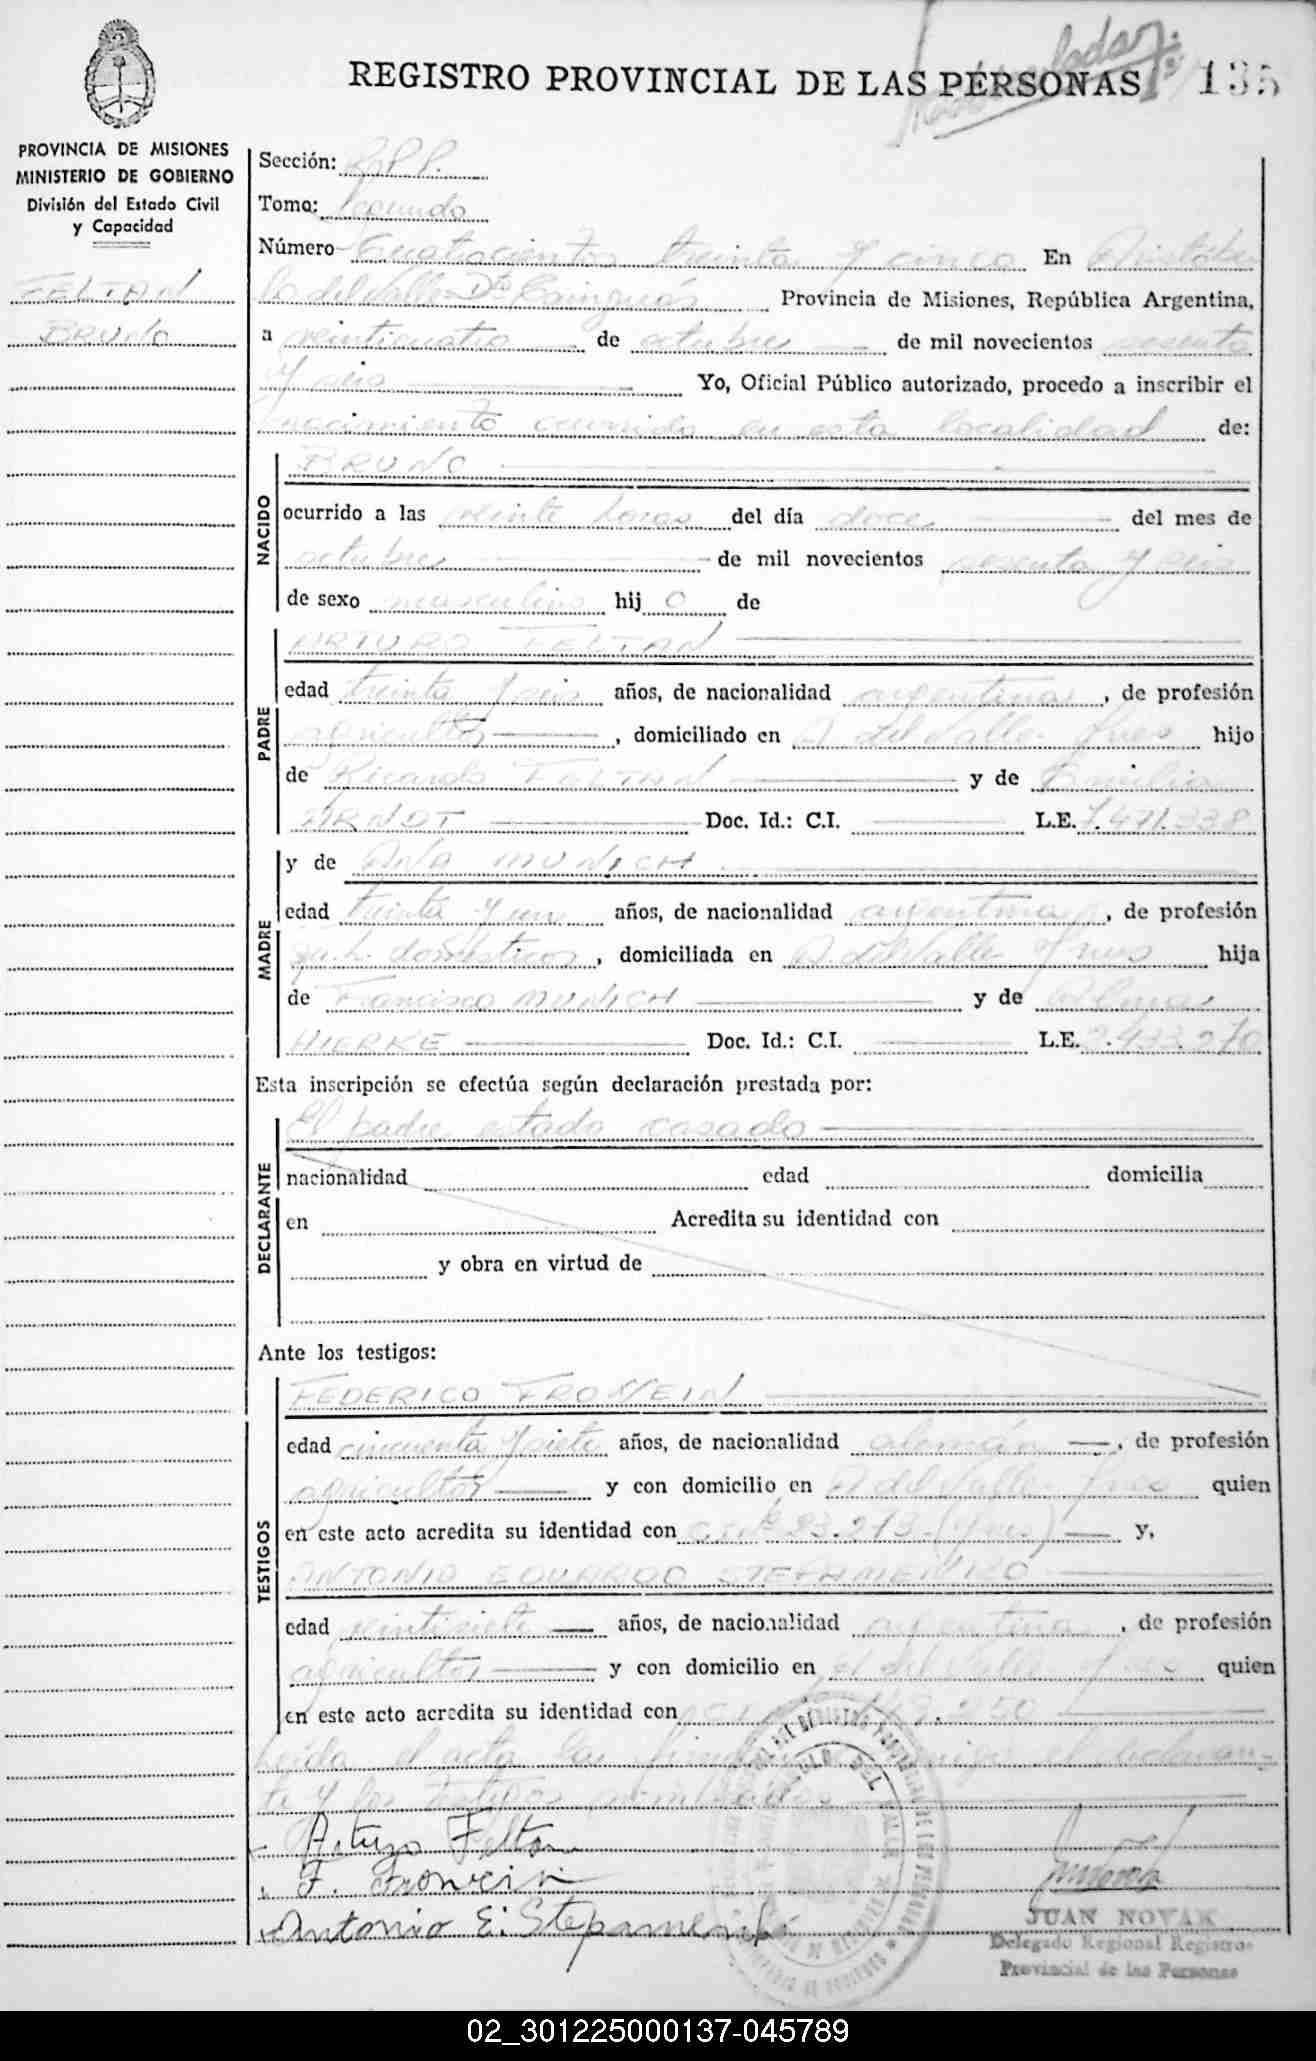 REGISTRO PROVINCIAL DE LAS PERSONAS 135
PROVINCIA DE MISIONES
MINISTERIO DE GOBIERNO
División del Estado Civil
y Capacidad
FELTAN
BRUNO
Sección:
Tomo: Segundo
Número Cuatrocientos treinta y cinco En Aristóbu
lo del Valle Dto Cainguás Provincia de Misiones, República Argentina,
a veinticuatro de octubre de mil novecientos sesenta
y seis Yo, Oficial Público autorizado, procedo a inscribir el
nacimiento ocurrido en esta localidad de:
NACIDO
BRUNO
ocurrido a las veinte horas del día doce del mes de
octubre de mil novecientos sesenta y seis
de sexo masculino hij o de
PADRE
ARTURO FELTAN
edad treinta y seis años, de nacionalidad argentina, de profesión
agricultor, domiciliado en A. del Valle Mnes hijo
de Ricardo FELTAN y de Emilia
ARNDT Doc. Id.: C.I. L.E. 7.471.338
MADRE
y de Ana MUNICH
edad treinta y un años, de nacionalidad argentina, de profesión
qu. h. domésticos, domiciliada en A. del Valle Mnes hija
de Francisco MUNICH y de Alma
HIERKE Doc. Id.: C.I. L.E. 2.433.270
Esta inscripción se efectúa según declaración prestada por:
DECLARANTE
El padre estado casado
nacionalidad edad domicilia
en Acredita su identidad con
y obra en virtud de
Ante los testigos:
TESTIGOS
FEDERICO FRONEIN
edad cincuenta y siete años, de nacionalidad alemán, de profesión
agricultor y con domicilio en A del Valle Mnes quien
en este acto acredita su identidad con C.I. Nº 23.213 (Mnes.) y,
ANTONIO EDUARDO STEFAMENKO
edad veintisiete años, de nacionalidad argentina, de profesión
agricultor y con domicilio en A. del Valle Mnes quien
en este acto acredita su identidad con
Leída el acta la firman conmigo el declaran-
te y los testigos
Arturo Feltan
F. Fronein
Antonio E. Stepamenko
JUAN NOVAK
Delegado Regional Registro
Provincial de las Personas
02_301225000137-045789